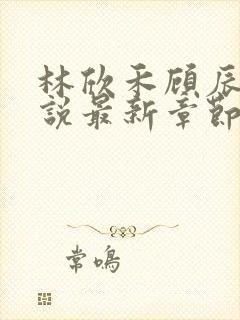 林欣禾顾辰
說最新章節
常鳴